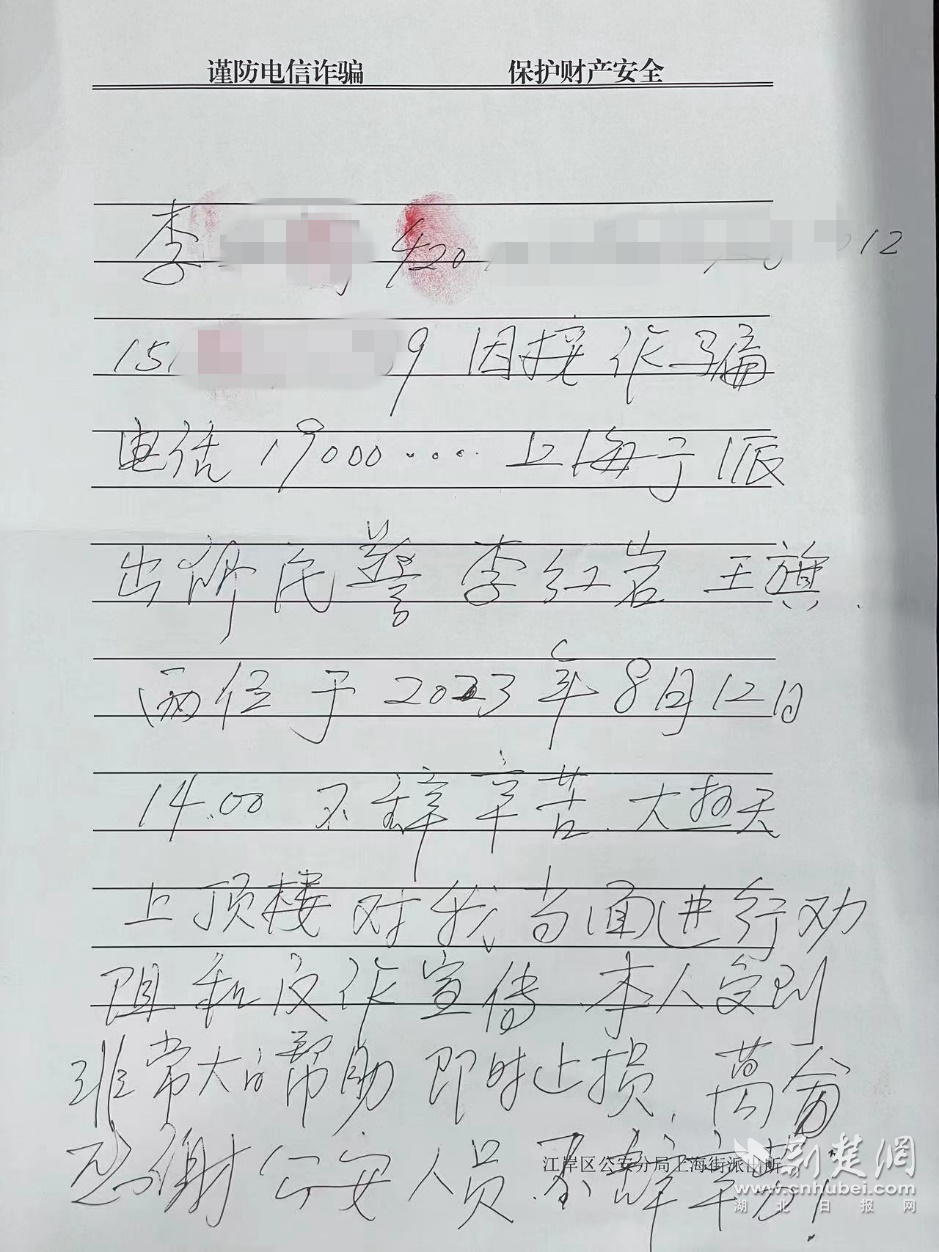 谨防电信诈骗 保护财产安全
李 420 012
15 9 因接诈骗
电话 19000…… 上海予派
出所民警 李红岩 王旗.
两位于2023年8月12日
14.00 不辞辛苦.大热天
上顶楼对我当面进行劝
阻和反诈宣传.本人受到
非常大的帮助 即时止损, 万分
感谢公安人员不辞辛劳!
江岸区公安分局上海街派出所
新楚网
www.cnhubei.com
湖北日报网